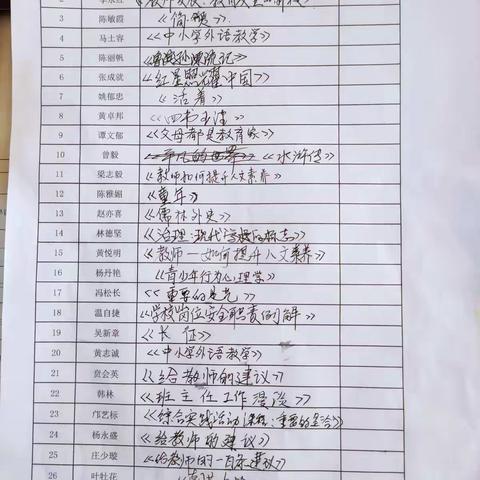 2 李永红
3 陈敏霞 《简·爱》
4 马土容 《中小学外语教学》
5 陈丽帆 漂流记》
6 张成就 《红星照耀中国》
7 姚郁忠 《活着》
8 黄卓邦 《四书五经》
9 谭文郁 《父母都是教育家》
10 曾毅 《平凡的世界》《水浒传》
11 梁志毅 《教师如何提升人文素养》
12 陈雅媚 《童年》
13 赵亦喜 《儒林外史》
14 林德坚 《治理:现代学校的标志》
15 黄悦明 《教师一如何提升人文素养》
16 杨丹艳 《青少年行为心理学》
17 冯松长 《重要的是光》
18 温自捷 《学校岗位安全职责例解》
19 吴新章 《长征》
20 黄志诚 《中小学外语教学》
21 贲会英 《给教师的建议》
22 韩林 《班主任工作漫谈》
23 邝艺标 《综合实践活动课程:重要的是合》
24 杨永盛 《给教师的建议》
25 庄少璇 《给教师的一百条建议》
26 叶牡花